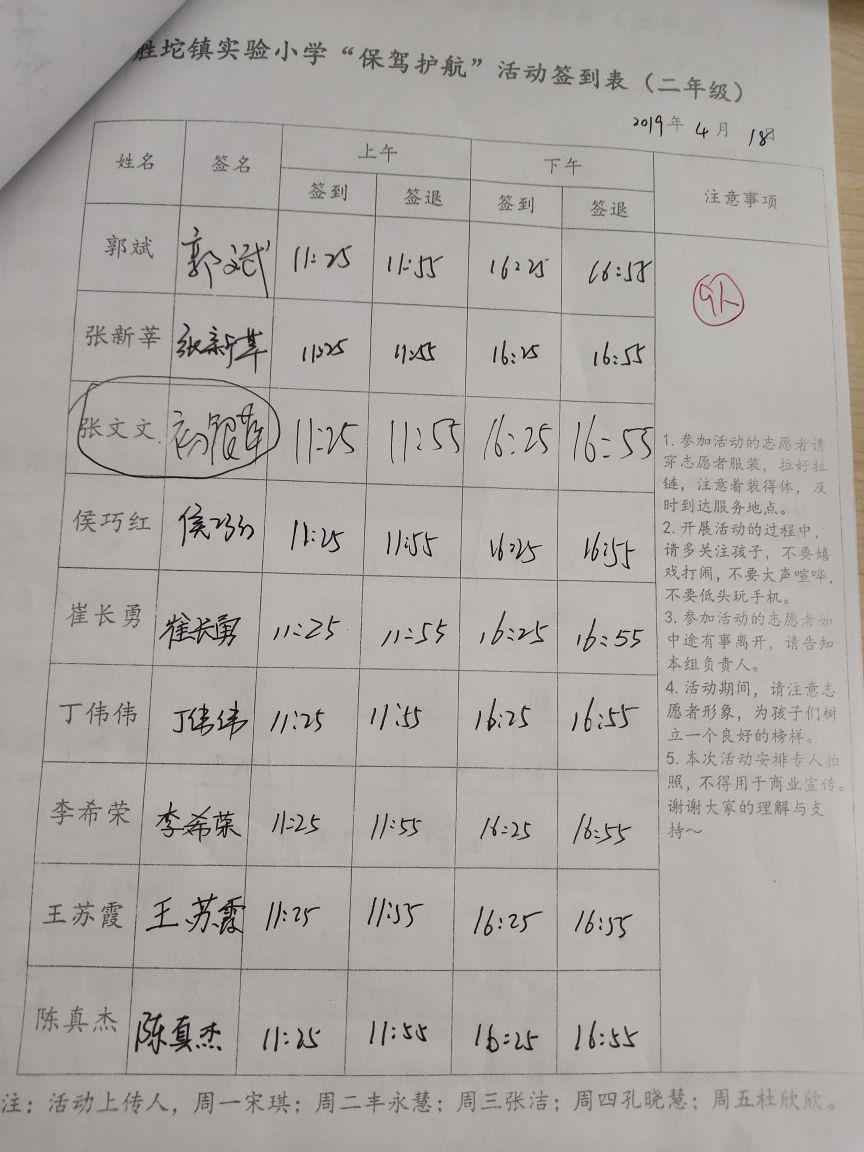 胜坨镇实验小学“保驾护航”活动签到表（二年级）
2019年 4月 18日
姓名 签名 上午 下午 注意事项
签到 签退 签到 签退
郭斌 郭文斌 11:25 11:55 16:25 16:55
9人
张新莘 张新莘 11:25 11:55 16:25 16:55
张文文. 11:25 11:55 16:25 16:55
侯巧红 侯巧红 11:25 11:55 16:25 16:55
崔长勇 崔长勇 11:25 11:55 16:25 16:55
丁伟伟 丁伟伟 11:25 11:55 16:25 16:55
李希荣 李希荣 11:25 11:55 16:25 16:55
王苏霞 王苏霞 11:25 11:55 16:25 16:55
陈真杰 陈真杰 11:25 11:55 16:25 16:55
1. 参加活动的志愿者请
穿志愿者服装，拉好拉
链，注意着装得体，及
时到达服务地点。
2. 开展活动的过程中，
请多关注孩子，不要嬉
戏打闹，不要大声喧哗，
不要低头玩手机。
3. 参加活动的志愿者如
中途有事离开，请告知
本组负责人。
4. 活动期间，请注意志
愿者形象，为孩子们树
立一个良好的榜样。
5. 本次活动安排专人拍
照，不得用于商业宣传。
谢谢大家的理解与支
持～
注：活动上传人，周一宋琪；周二丰永慧；周三张洁；周四孔晓慧；周五杜欣欣。